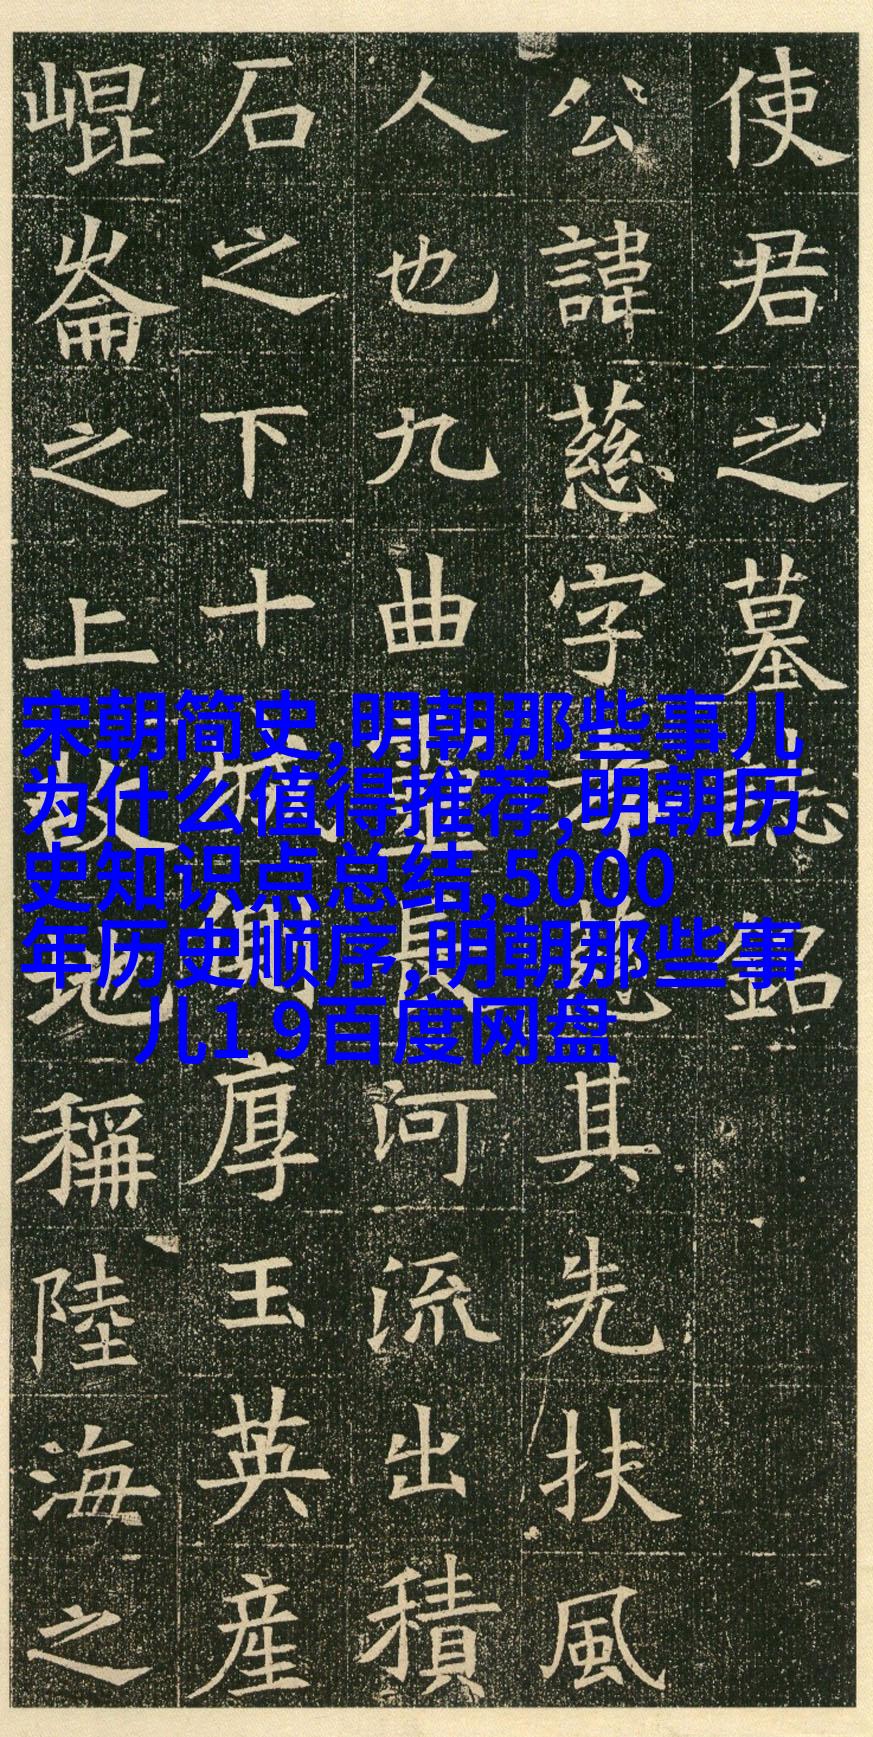 使君之墓誌銘
公諱慈字其先扶風
人也九曲長河流出積
石之下十側厚玉英産
崐崙之上故地稱陸海之
宋朝简史,明朝那些事儿
为什么值得推荐,明朝历
史知识点总结,5000
年历史顺序,明朝那些事
儿1 9百度网盘